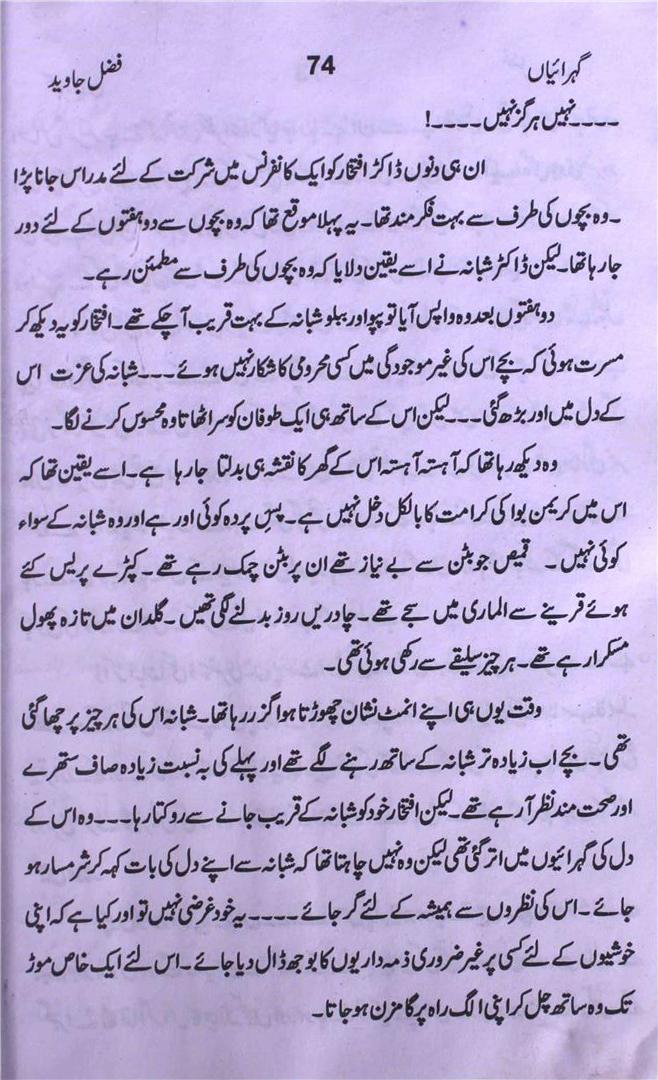 گہرائیاں 74 فضل جاوید
۔۔۔۔نہیں ہرگز نہیں۔۔۔۔!
ان ہی دنوں ڈاکٹر افتخار کو ایک کانفرنس میں شرکت کے لئے مدراس جانا پڑا
۔وہ بچوں کی طرف سے بہت فکر مند تھا۔ یہ پہلا موقع تھا کہ وہ بچوں سے دو ہفتوں کے لئے دور
جا رہا تھا۔ لیکن ڈاکٹر شبانہ نے اسے یقین دلایا کہ وہ بچوں کی طرف سے مطمئن رہے۔
دو ہفتوں بعد وہ واپس آیا تو پپو اور ببلو شبانہ کے بہت قریب آ چکے تھے۔ افتخار کو یہ دیکھ کر
مسرت ہوئی کہ بچے اس کی غیر موجودگی میں کسی محرومی کا شکار نہیں ہوئے ۔۔۔ شبانہ کی عزت اس
کے دل میں اور بڑھ گئی ۔۔۔ لیکن اس کے ساتھ ہی ایک طوفان کو سر اٹھاتا وہ محسوس کرنے لگا۔
وہ دیکھ رہا تھا کہ آہستہ آہستہ اس کے گھر کا نقشہ ہی بدلتا جا رہا ہے۔ اسے یقین تھا کہ
اس میں کریمن بوا کی کرامت کا بالکل دخل نہیں ہے۔ پسِ پردہ کوئی اور ہے اور وہ شبانہ کے سواء
کوئی نہیں ۔ قمیص جو بٹن سے بے نیاز تھے ان پر بٹن چمک رہے تھے۔ کپڑے پریس کئے
ہوئے قرینے سے الماری میں سجے تھے۔ چادریں روز بدلنے لگی تھیں۔ گلدان میں تازہ پھول
مسکرا رہے تھے۔ ہر چیز سلیقے سے رکھی ہوئی تھی۔
وقت یوں ہی اپنے انمٹ نشان چھوڑتا ہوا گزر رہا تھا۔ شبانہ اس کی ہر چیز پر چھا گئی
تھی ۔ بچے اب زیادہ تر شبانہ کے ساتھ رہنے لگے تھے اور پہلے کی بہ نسبت زیادہ صاف ستھرے
اور صحت مند نظر آ رہے تھے۔ لیکن افتخار خود کو شبانہ کے قریب جانے سے روکتا رہا ۔۔۔ وہ اس کے
دل کی گہرائیوں میں اتر گئی تھی لیکن وہ نہیں چاہتا تھا کہ شبانہ سے اپنے دل کی بات کہہ کر شرمسار ہو
جائے۔ اس کی نظروں سے ہمیشہ کے لئے گر جائے ۔۔۔۔ یہ خود غرضی نہیں تو اور کیا ہے کہ اپنی
خوشیوں کے لئے کسی پر غیر ضروری ذمہ داریوں کا بوجھ ڈال دیا جائے۔ اس لئے ایک خاص موڑ
تک وہ ساتھ چل کر اپنی الگ راہ پر گامزن ہو جاتا۔